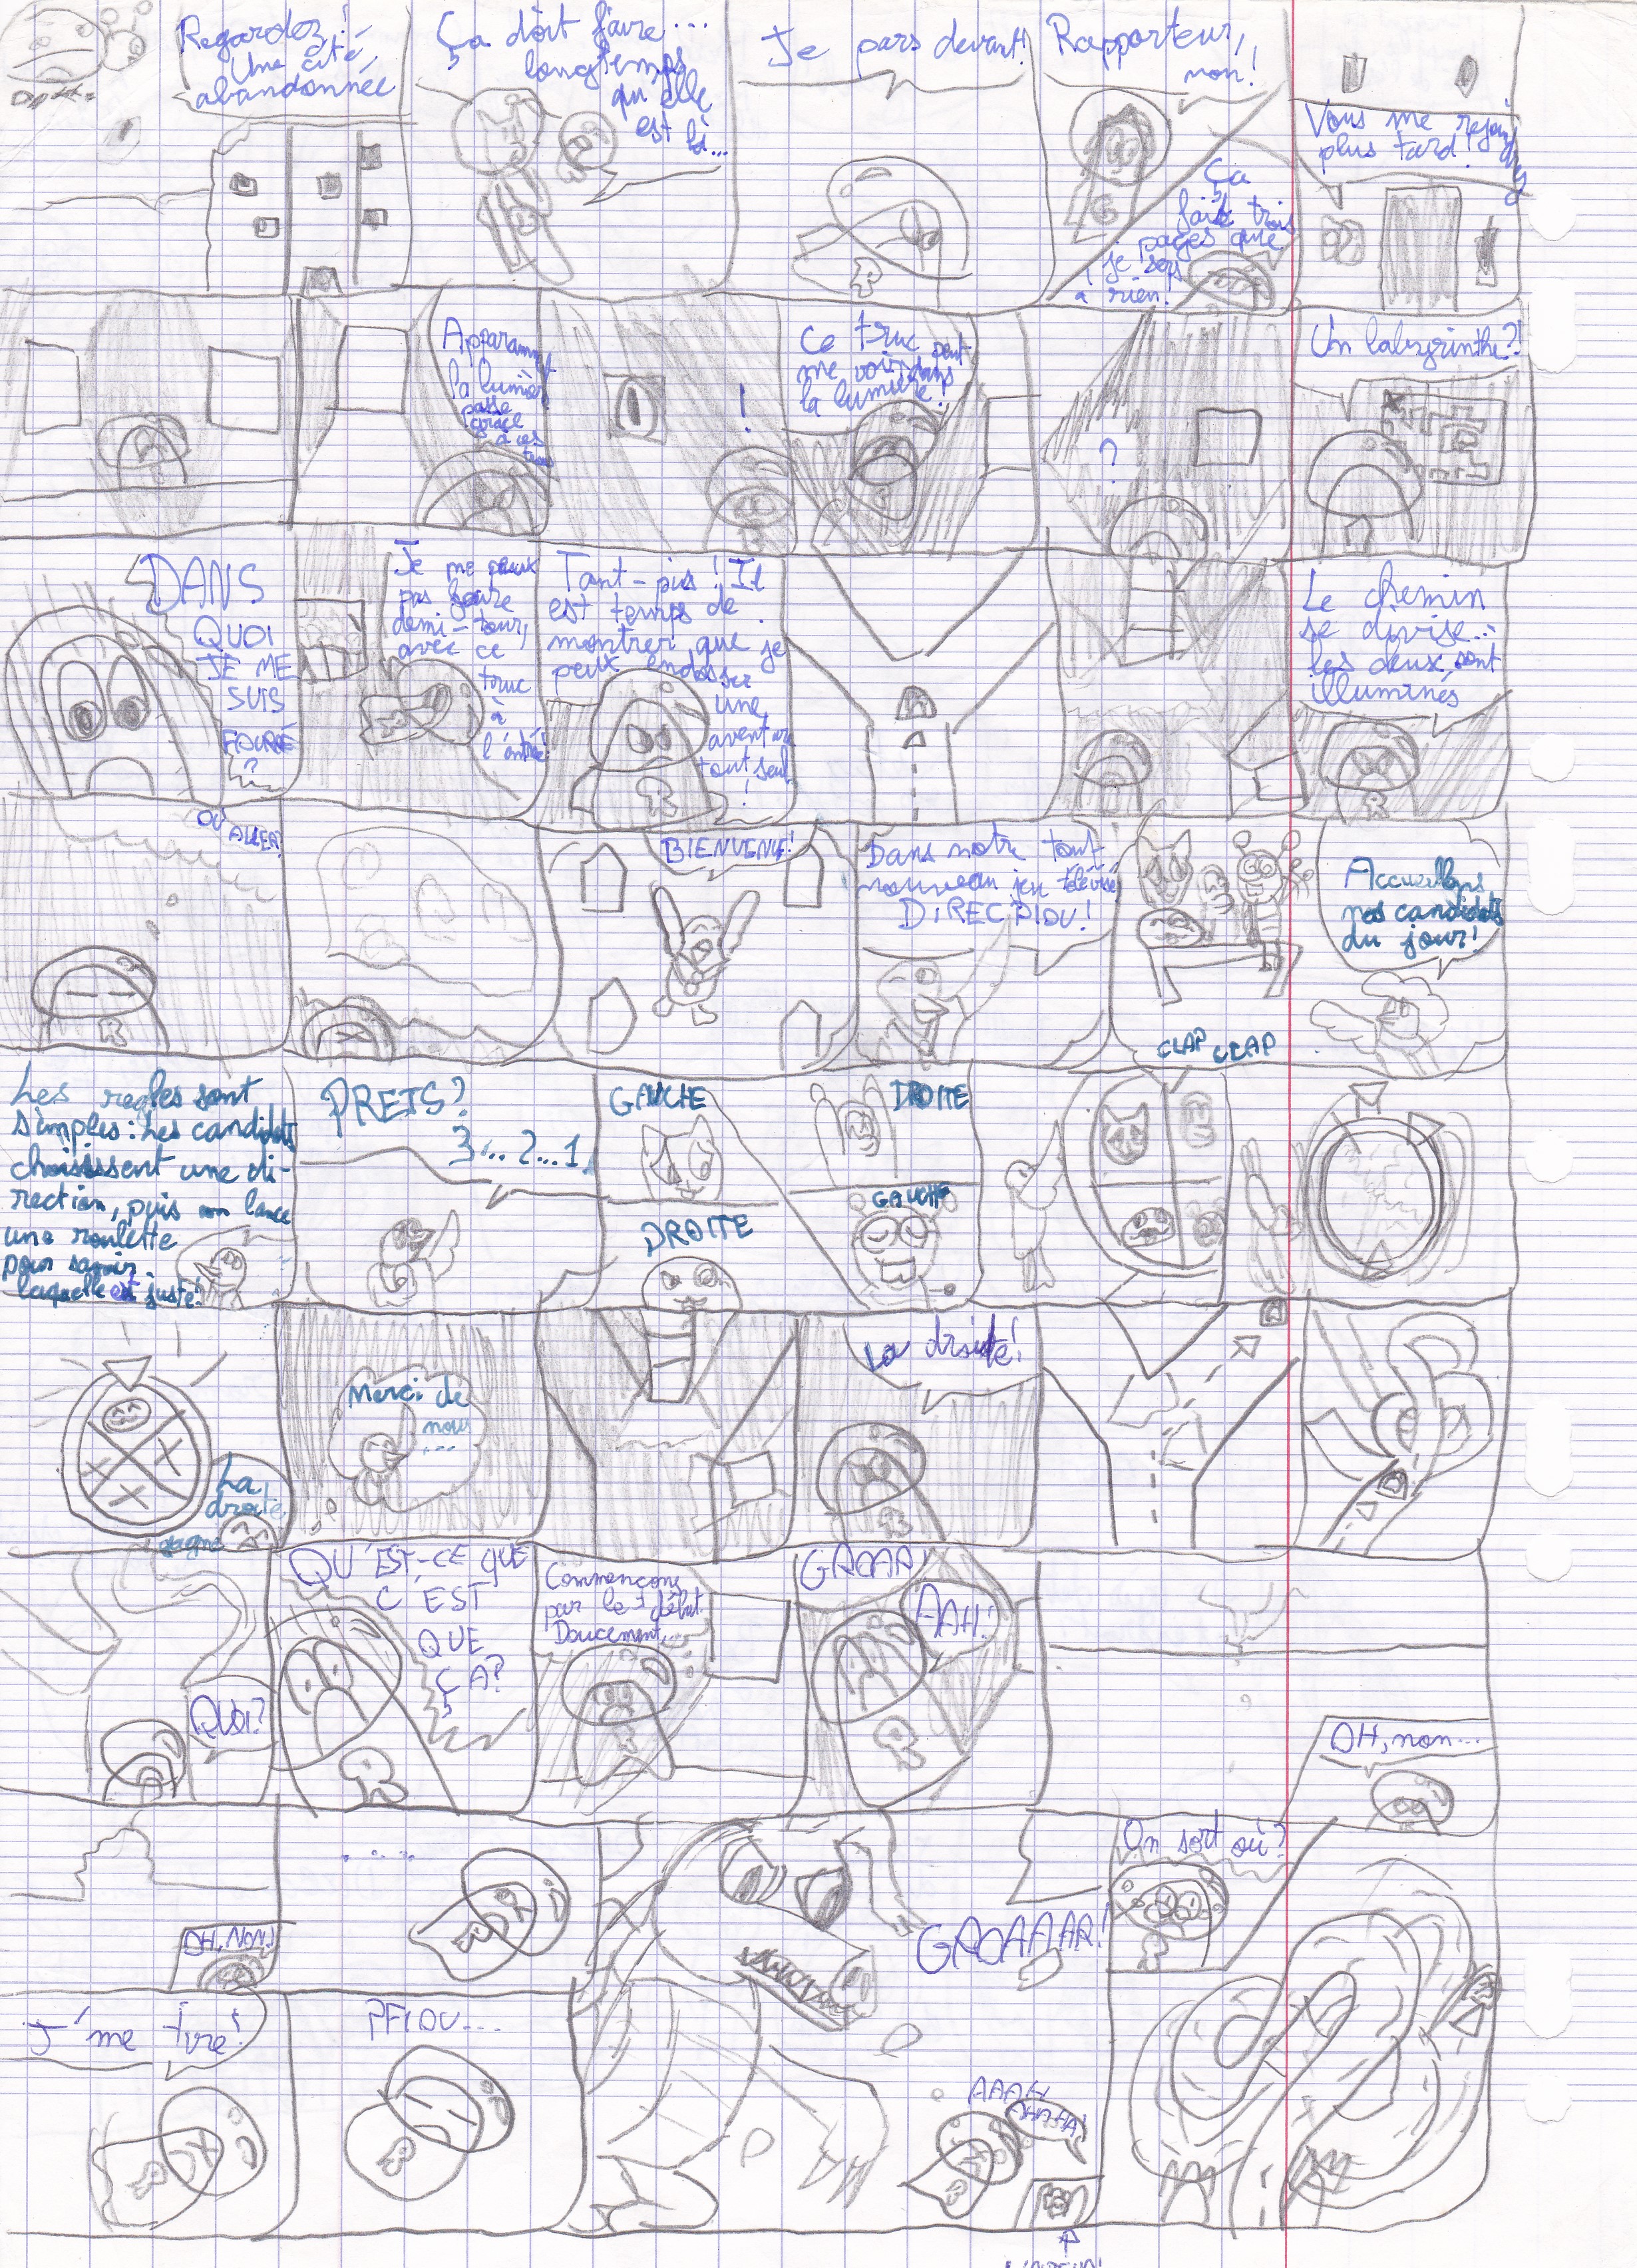 Regardez !
Une cité
abandonnée
Ça doit faire...
longtemps
qu'elle
est là...
Je pars devant!
Rapporteur,
non!
Ça
fait trois
pages que
je sers
à rien!
Vous me
plus tard!
la lumière
passe
grâce
à ces
trous
!
Ce truc peut
me voir dans
la lumière!
?
Un labyrinthe?!
DANS
QUOI
JE ME
SUIS
FOURRÉ
?
Je me peux
pas faire
demi-tour,
avec ce
truc
à
Tant-pis! Il
est temps de
montrer que je
peux endosser
une
aventure
tout seul
!
Le chemin
se divise...
les deux sont
illuminés
OÙ
ALLER?
BIENVENUE!
Dans notre tout
nouveau jeu télévisé
DIREC'PIOU!
CLAP CLAP
Accueillons
nos candidats
du jour!
Les regles sont
simples: Les candidats
choisissent une di-
rection, puis on lance
une roulette
pour savoir
laquelle est juste!
PRETS?
3...2...1
GAUCHE
DROITE
DROITE
GAUCHE
La
droite
gagne
Merci de
nous
...
La droite!
QUOI?
QU'EST-CE QUE
C'EST
QUE
ÇA?
Commençons
par le début.
Doucement...
GRAAAR!
AAH!
OH, non...
OH, NON!
....
GRAAAAAR!
On sort où?
J'me tire!
PFIOU...
R